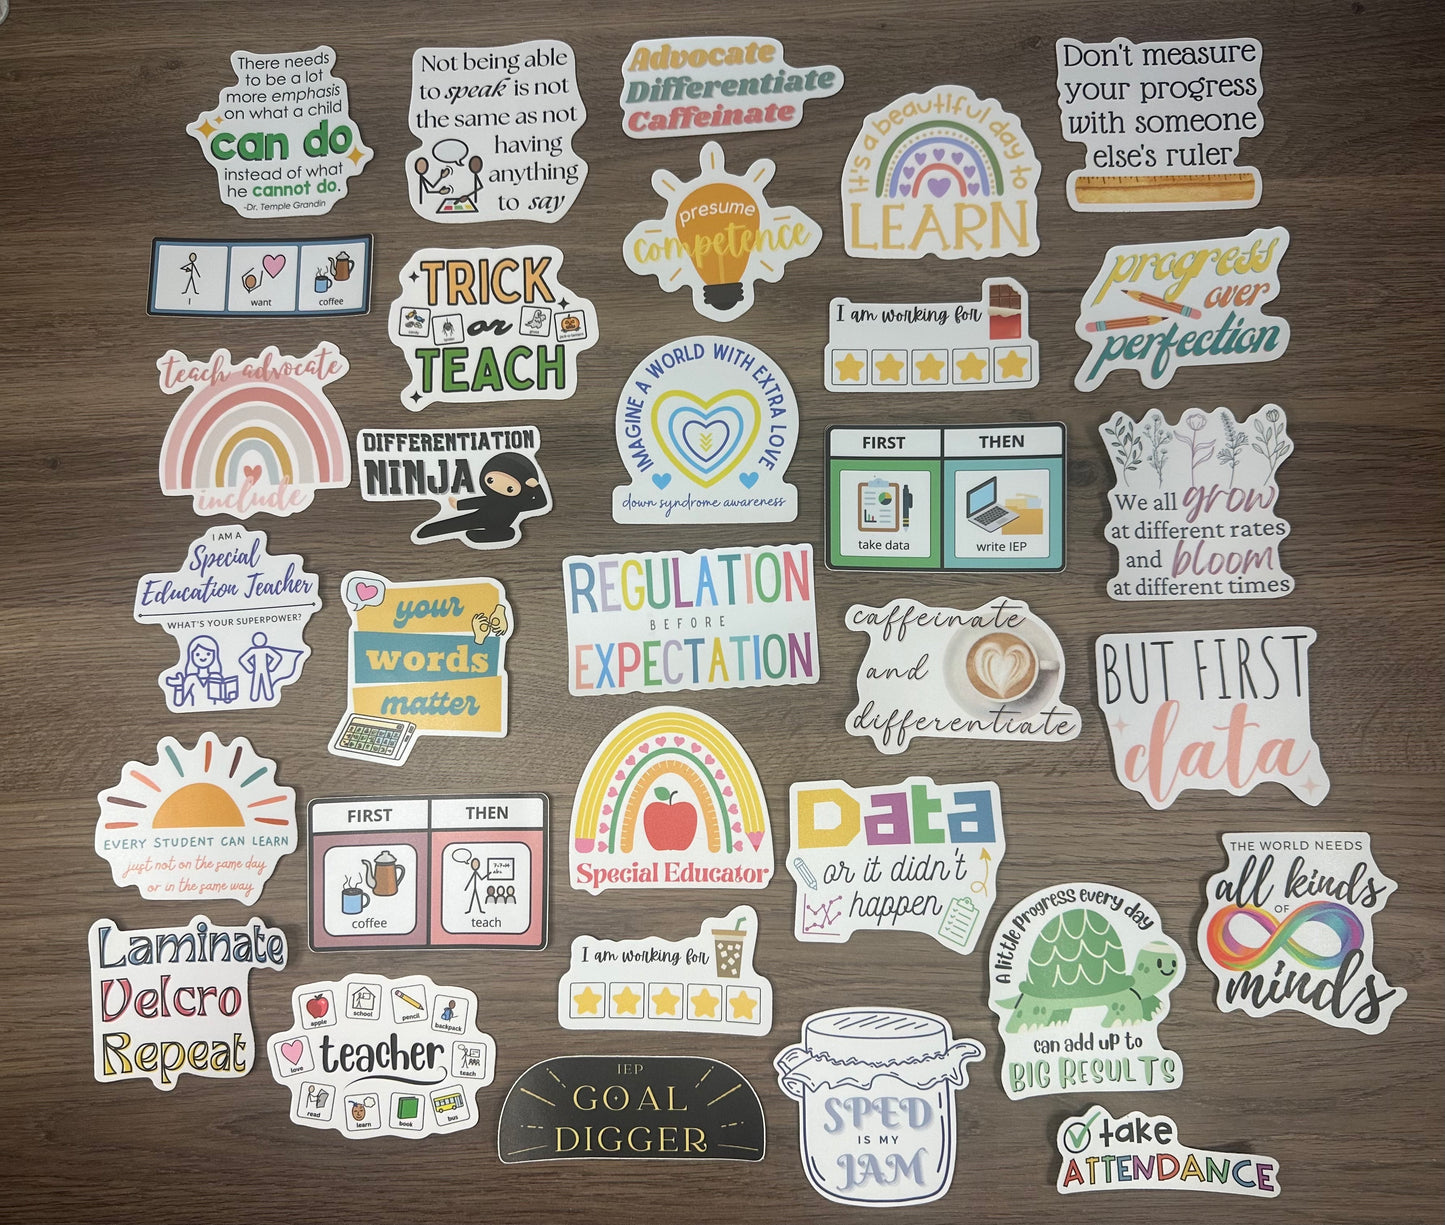 There needs
to be a lot
more emphasis
on what a child
can do
instead of what
he cannot do.
-Dr. Temple Grandin
Not being able
to speak is not
the same as not
having
anything
to say
Advocate
Differentiate
Caffeinate
it's a beautiful day to
LEARN
Don't measure
your progress
with someone
else's ruler
I
want
coffee
TRICK
or
TEACH
presume
competence
I am working for
progress
over
perfection
teach advocate
include
DIFFERENTIATION
NINJA
IMAGINE A WORLD WITH EXTRA LOVE
down syndrome awareness
FIRST
THEN
take data
write IEP
We all grow
at different rates
and bloom
at different times
I AM A
Special
Education Teacher
WHAT'S YOUR SUPERPOWER?
your
words
matter
REGULATION
BEFORE
EXPECTATION
caffeinate
and
differentiate
BUT FIRST
data
EVERY STUDENT CAN LEARN
just not on the same day
or in the same way
FIRST
THEN
coffee
teach
Special Educator
Data
or it didn't
happen
THE WORLD NEEDS
all kinds
OF
minds
Laminate
Velcro
Repeat
apple
school
pencil
backpack
love
teacher
teach
read
learn
book
bus
I am working for
A little progress every day
can add up to
BIG RESULTS
IEP
GOAL
DIGGER
SPED
IS MY
JAM
take
ATTENDANCE